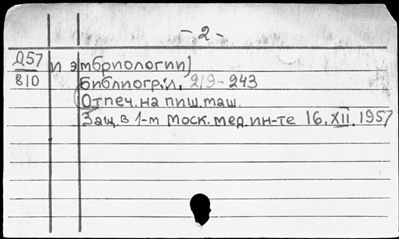 - 2 -
Д57 и эмбриологии]
810 Библиогр.: л. 219-243
Отпеч. на пиш. маш.
Защ. в 1-м Моск. мед. ин-те 16.XII.1957